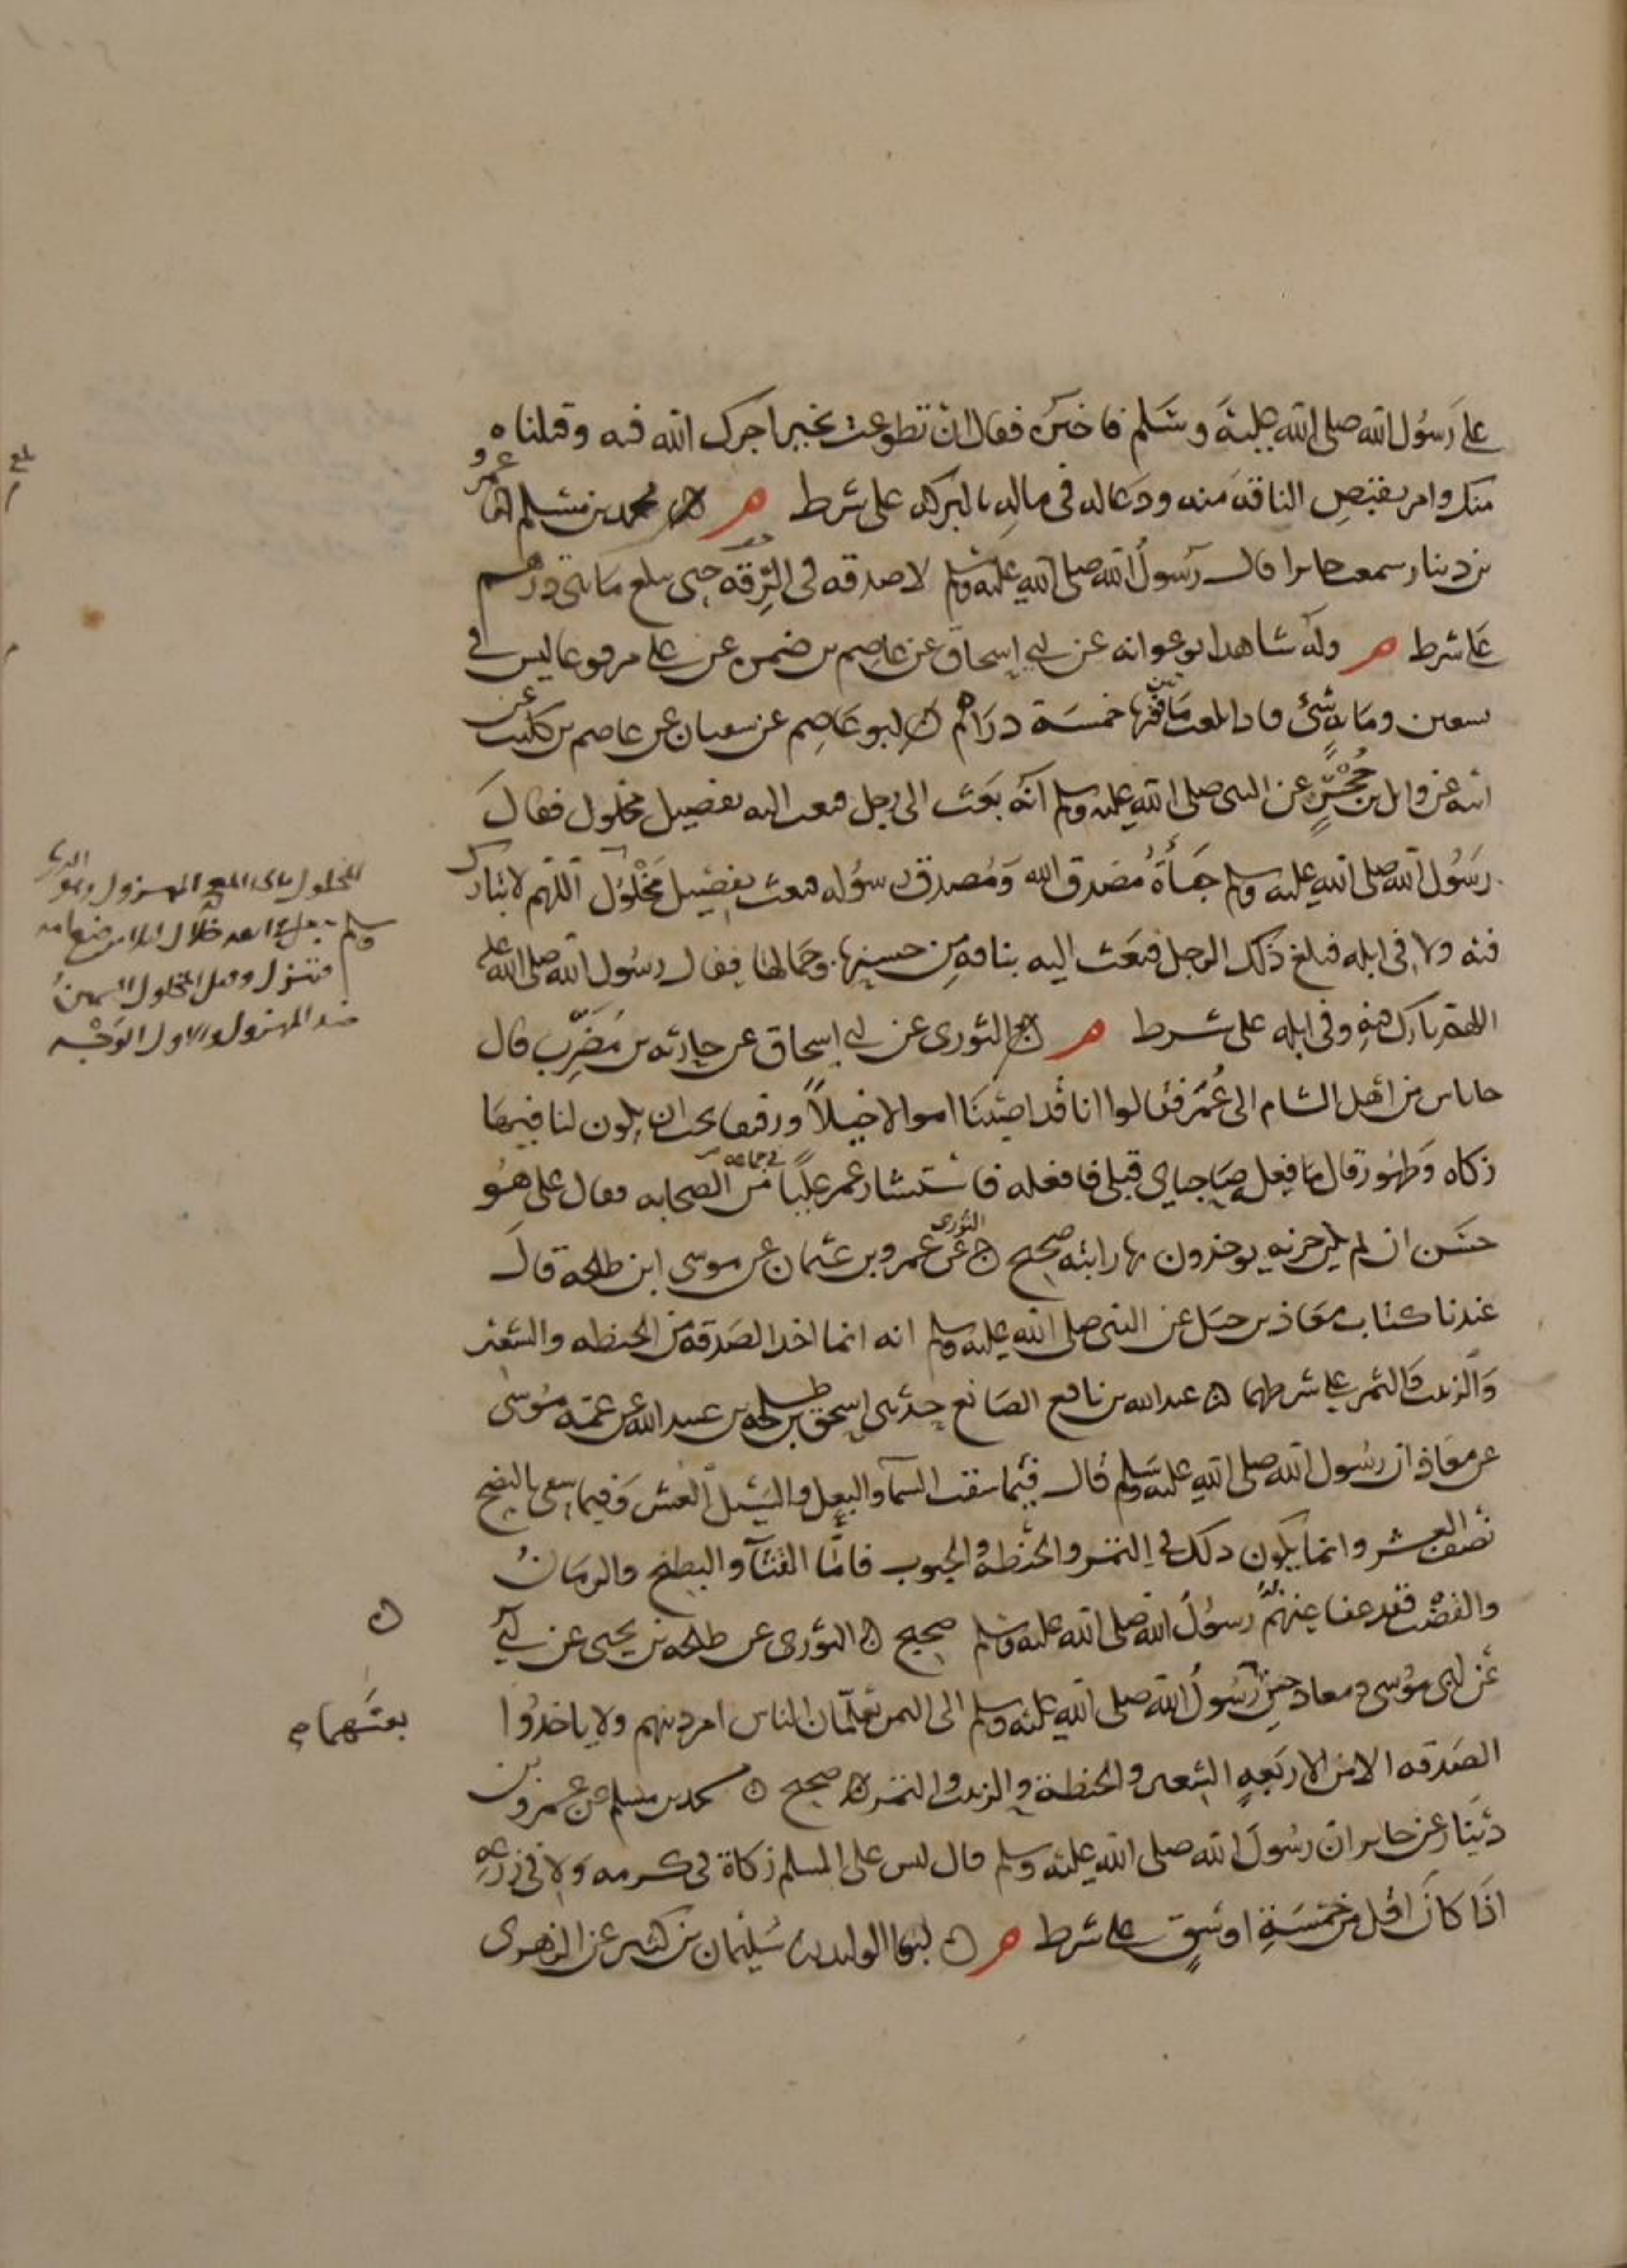 على رسول الله صلى الله عليه وسلم فاخبره فقال ان تطوعت بخير اجرك الله فيه وقبلناه
منك وامر بقبض الناقة منه ودعا له في ماله بالبركه على شرط م محمد بن مسلم عمرو
بن دينار سمعت جابرا قال رسول الله صلى الله عليه وسلم لا صدقه في الرقه حتى تبلغ مائتي درهم
على شرط م وله شاهد ابو عوانه عن ابي اسحاق عن عاصم بن ضمره عن علي مرفوعا ليس في
تسعين ومايه شئ فاذا بلغت مائتين ففيها خمسة دراهم ابو عاصم عن سفيان عن عاصم بن كليب عن
ابيه عن وائل بن حجر عن النبي صلى الله عليه وسلم انه بعث الى رجل فبعث اليه بفصيل مخلول فقال
رسول الله صلى الله عليه وسلم جاءه مصدق الله ومصدق رسوله فبعث بفصيل مخلول اللهم لا تبارك
فيه ولا في ابله فبلغ ذلك الرجل فبعث اليه بناقه من حسنها وجمالها فقال رسول الله صلى الله عليه
اللهم بارك فيه وفي ابله على شرط م الثوري عن ابي اسحاق عن حارثه بن مضرب قال
جا ناس من اهل الشام الى عمر فقالوا انا قد اصبنا اموالا خيلا ورقيقا نحب ان يكون لنا فيها
زكاه وطهور قال ما فعله صاحباي قبلي فافعله فاستشار عمر عليا في جماعه من الصحابه فقال علي هو
حسن ان لم يكن جزيه يوخذون بها راتبه صحيح الثوري عن عمرو بن عثمان عن موسى ابن طلحه قال
عندنا كتاب معاذ بن جبل عن النبي صلى الله عليه وسلم انه انما اخذ الصدقه من الحنطه والشعير
والزبيب والتمر على شرطهما عبد الله بن نافع الصائغ حدثني اسحق بن طلحه بن عبيد الله عن عمه موسى
عن معاذ ان رسول الله صلى الله عليه وسلم قال فيما سقت السماء والبعل والسيل العشر وفيما سقي بالنضح
نصف العشر وانما يكون ذلك في التمر والحنطة والحبوب فاما القثاء والبطيخ والرمان
والقضب فقد عفا عنه رسول الله صلى الله عليه وسلم صحيح الثوري عن طلحه بن يحيى عن ابي
عن ابي موسى ومعاذ حين رسول الله صلى الله عليه وسلم الى اليمن تعلمان الناس امر دينهم ولا ياخذوا
الصدقه الا من الاربعه الشعير والحنطة والزبيب والتمر صحيح محمد بن مسلم عن عمرو بن
دينار عن جابر ان رسول الله صلى الله عليه وسلم قال ليس على المسلم زكاة في كرمه ولا في زرعه
اذا كان اقل من خمسة اوسق على شرط م ابو الوليد سليمان بن كثير عن الزهري
المخلول المهزول وهو الذي
جعل في انفه خلال لئلا يرضع امه
فتهزل وقيل المخلول السمين
ضد المهزول والاول الوجه
بعثهما